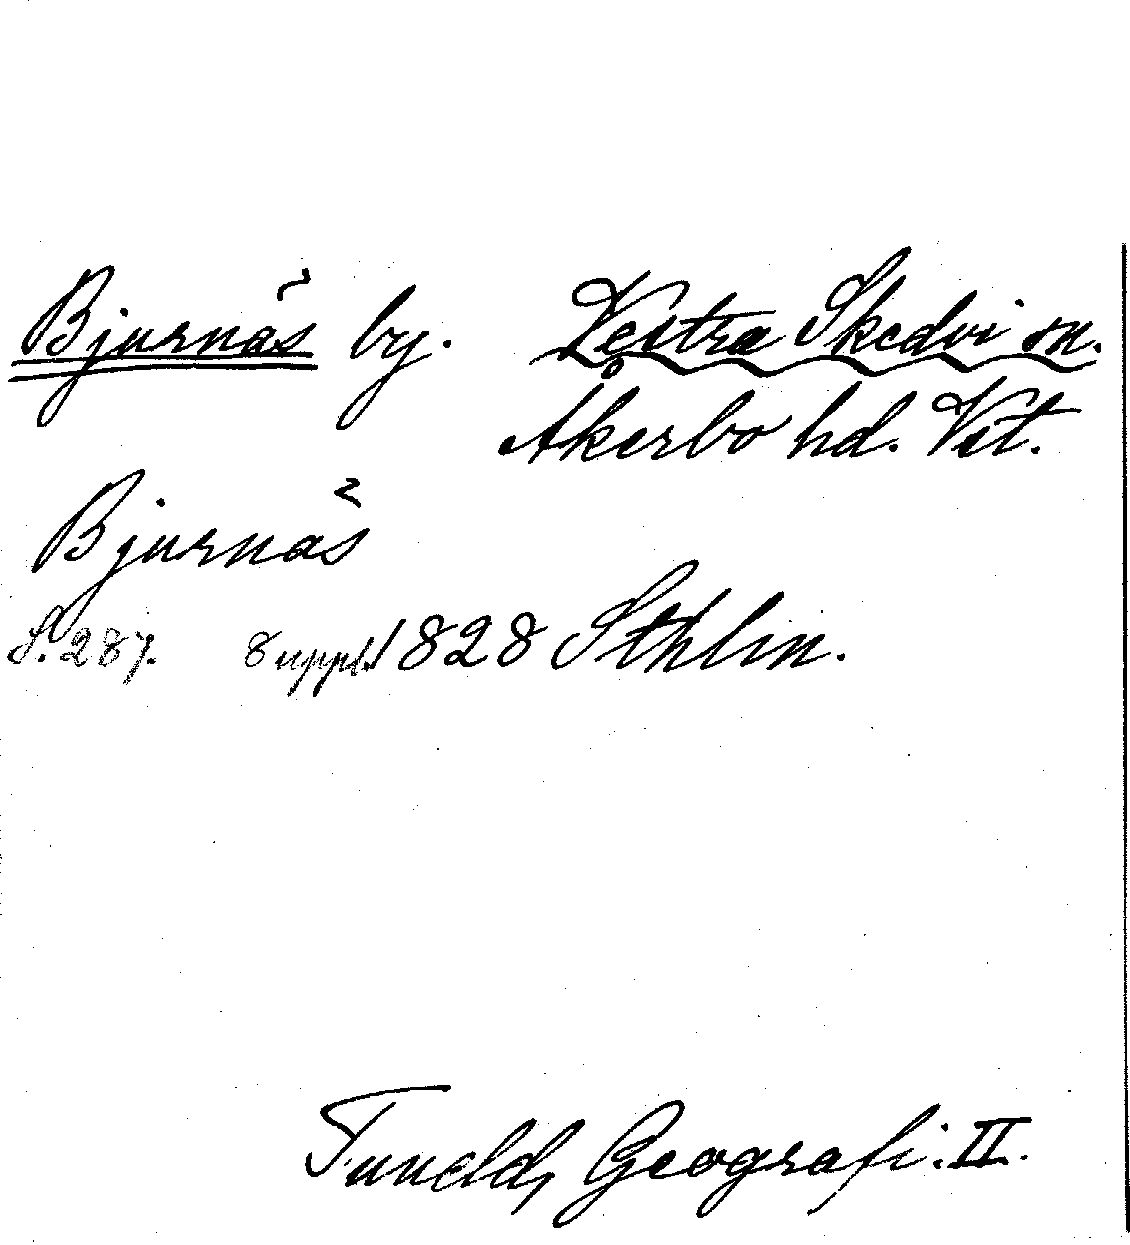 Bjurnäs by. Vestra Skedvi sn.
Åkerbo hd. Vst.
Bjurnäs
S. 287. 8 uppl. 1828 Sthlm.
Tuneld, Geografi. II.